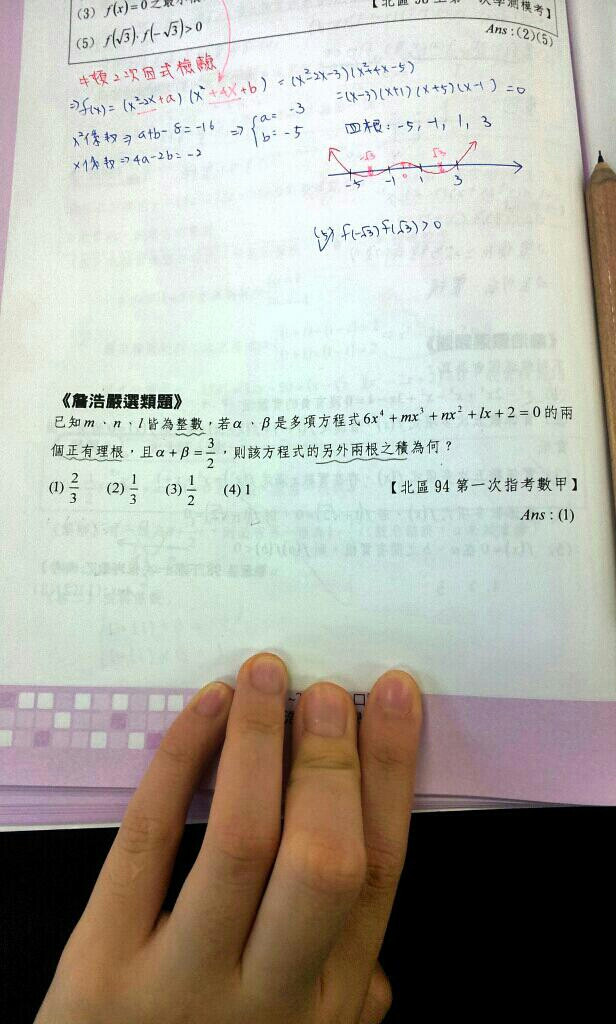 (3) f(x)=0之最小
【北區 98 上第一次學測模考】
(5) f(√3)·f(-√3)>0
Ans : (2)(5)
牛頓2次因式檢驗
⇒f(x) = (x²-2x+a)(x²+4x+b) = (x²-2x-3)(x²+4x-5)
=(x-3)(x+1)(x+5)(x-1) = 0
x²係數⇒ a+b-8=-16 ⇒ { a= -3
b= -5
x係數⇒4a-2b=-2
四根: -5, -1, 1, 3
-√3 √3
-5 -1 0 1 3
(5) f(-√3)f(√3)>0
《詹浩嚴選類題》
已知 m、n、l 皆為整數，若 α、β 是多項方程式 6x⁴ + mx³ + nx² + lx + 2 = 0 的兩
個正有理根，且 α + β = 3/2，則該方程式的另外兩根之積為何？
(1) 2/3 (2) 1/3 (3) 1/2 (4) 1 【北區 94 第一次指考數甲】
Ans : (1)